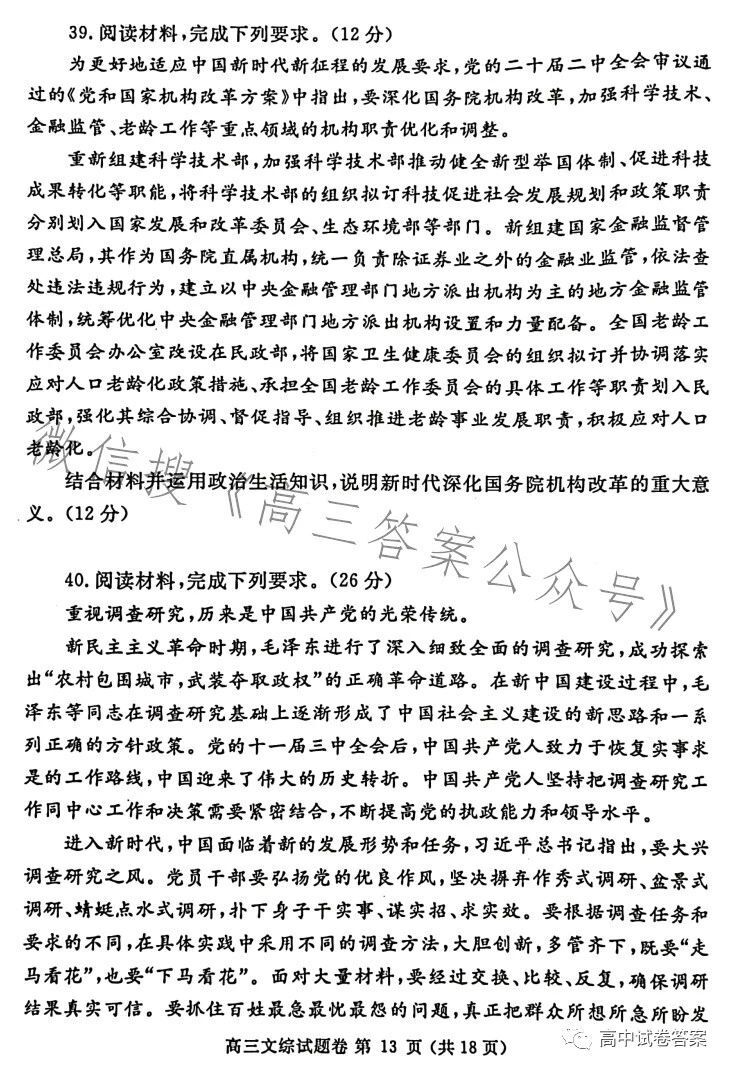 39.阅读材料,完成下列要求。(12分)
为更好地适应中国新时代新征程的发展要求,党的二十届二中全会审议通
过的《党和国家机构改革方案》中指出,要深化国务院机构改革,加强科学技术、
金融监管、老龄工作等重点领域的机构职责优化和调整。
重新组建科学技术部,加强科学技术部推动健全新型举国体制、促进科技
成果转化等职能,将科学技术部的组织拟订科技促进社会发展规划和政策职责
分别划入国家发展和改革委员会、生态环境部等部门。新组建国家金融监督管
理总局,其作为国务院直属机构,统一负责除证券业之外的金融业监管,依法查
处违法违规行为,建立以中央金融管理部门地方派出机构为主的地方金融监管
体制,统筹优化中央金融管理部门地方派出机构设置和力量配备。全国老龄工
作委员会办公室改设在民政部,将国家卫生健康委员会的组织拟订并协调落实
应对人口老龄化政策措施、承担全国老龄工作委员会的具体工作等职责划入民
政部,强化其综合协调、督促指导、组织推进老龄事业发展职责,积极应对人口
老龄化。
结合材料并运用政治生活知识,说明新时代深化国务院机构改革的重大意
义。(12分)
40.阅读材料,完成下列要求。(26分)
重视调查研究,历来是中国共产党的光荣传统。
新民主主义革命时期,毛泽东进行了深入细致全面的调查研究,成功探索
出“农村包围城市,武装夺取政权”的正确革命道路。在新中国建设过程中,毛
泽东等同志在调查研究基础上逐渐形成了中国社会主义建设的新思路和一系
列正确的方针政策。党的十一届三中全会后,中国共产党人致力于恢复实事求
是的工作路线,中国迎来了伟大的历史转折。中国共产党人坚持把调查研究工
作同中心工作和决策需要紧密结合,不断提高党的执政能力和领导水平。
进入新时代,中国面临着新的发展形势和任务,习近平总书记指出,要大兴
调查研究之风。党员干部要弘扬党的优良作风,坚决摒弃作秀式调研、盆景式
调研、蜻蜓点水式调研,扑下身子干实事、谋实招、求实效。要根据调查任务和
要求的不同,在具体实践中采用不同的调查方法,大胆创新,多管齐下,既要“走
马看花”,也要“下马看花”。面对大量材料,要经过交换、比较、反复,确保调研
结果真实可信。要抓住百姓最急最忧最怨的问题,真正把群众所想所急所盼发
高三文综试题卷 第 13 页 (共18页)
高中试卷答案
微信搜《高三答案公众号》